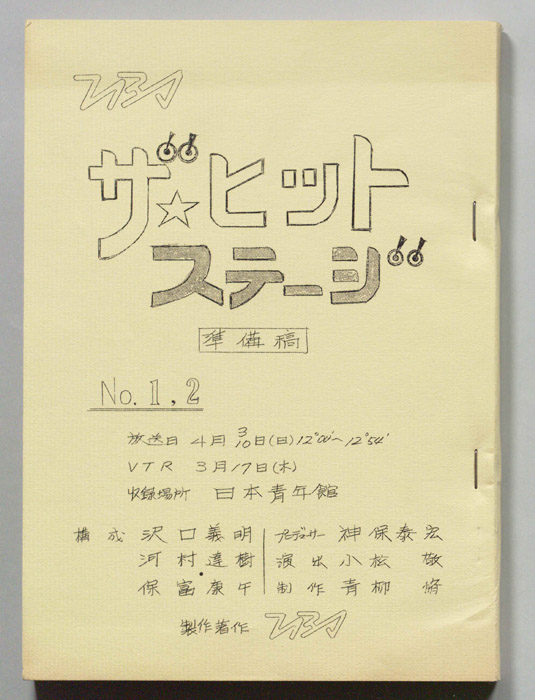 TBS
ザ☆ヒット
ステージ
準備稿
No. 1, 2
放送日 4月 3 10日(日) 12°00'~12°54'
VTR 3月17日(木)
収録場所 日本青年館
構成 沢口義明 プロデューサー 神保泰宏
河村達樹 演出 小松敬
保富康午 制作 青柳脩
製作著作 TBS